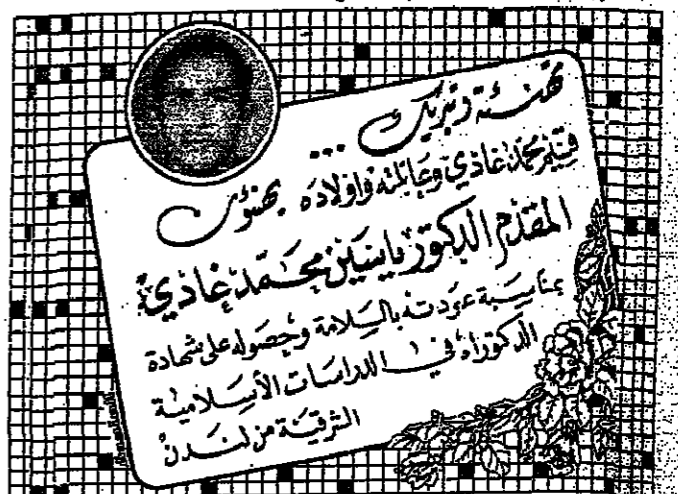 تهنئة وتبريك ...
محمد غاذي وعائلته واولاده يهنؤن
المقدم الدكتور ياسين محمد غاذي
بمناسبة عودته بالسلامة وحصوله على شهادة
الدكتوراه في الدراسات الأسلامية
الشرقية من لندن